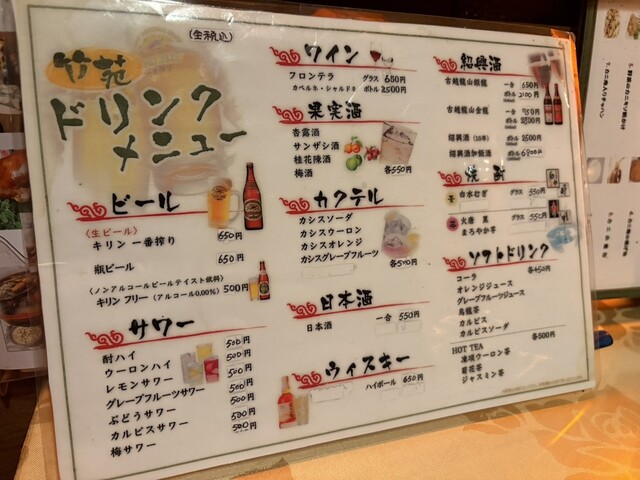 (全税込)
竹苑
ドリンク
メニュー
ビール
〈生ビール〉
キリン 一番搾り 650円
瓶ビール 650円
〈ノンアルコールビールテイスト飲料〉
キリン フリー (アルコール0.00%) 500円
サワー
酎ハイ 500円
ウーロンハイ 500円
レモンサワー 500円
グレープフルーツサワー 500円
ぶどうサワー 500円
カルピスサワー 500円
梅サワー 500円
ワイン
フロンテラ グラス 650円
カベルネ・シャルドネ ボトル 2500円
果実酒
杏露酒
サンザシ酒
桂花陳酒
梅酒 各550円
カクテル
カシスソーダ
カシスウーロン
カシスオレンジ
カシスグレープフルーツ 各500円
日本酒
日本酒 一合 550円
ウィスキー
ハイボール 650円
紹興酒
古越龍山銀龍 一合 650円
ボトル 2100円
古越龍山金龍 一合
ボトル
紹興酒 ボトル 2500円
紹興酒加飯酒 ボトル
焼酎
グラス 550円
グラス 550円
まろやか芋
ソフトドリンク
コーラ 各450円
オレンジジュース
グレープフルーツジュース
烏龍茶
カルピス
カルピスソーダ
HOT TEA 各500円
凍頂ウーロン茶
菊花茶
ジャスミン茶